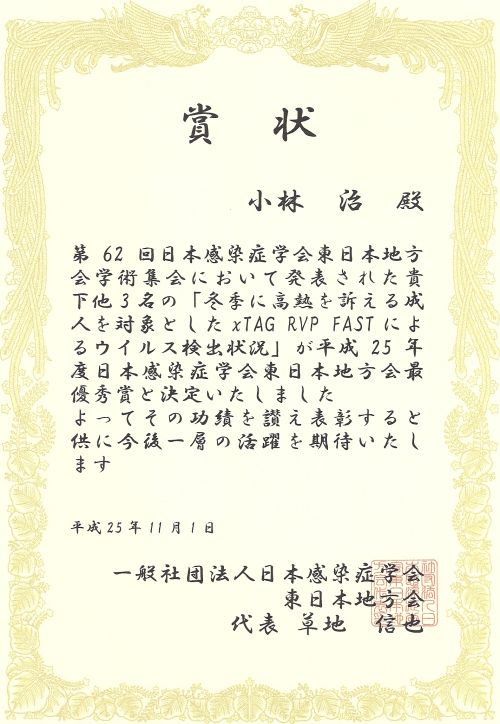 賞 状
小林 治 殿
第 62 回日本感染症学会東日本地方
会学術集会において発表された貴
下他 3 名の「冬季に高熱を訴える成
人を対象とした xTAG RVP FAST によ
るウイルス検出状況」が平成 25 年
度日本感染症学会東日本地方会最
優秀賞と決定いたしました
よってその功績を讃え表彰すると
供に今後一層の活躍を期待いたし
ます
平成 25 年 11 月 1 日
一般社団法人日本感染症学会
東日本地方会
代表 草地 信也